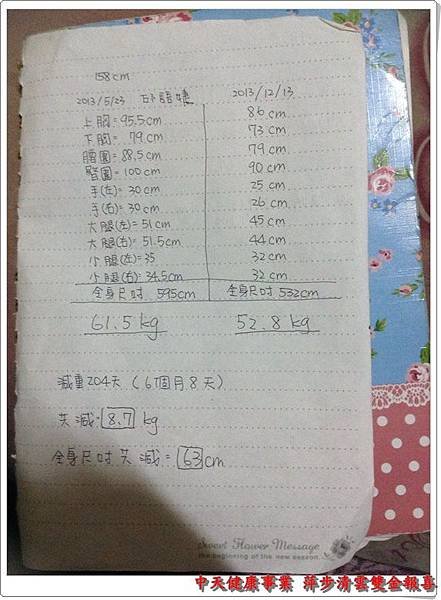 158cm
2013/5/23 邱語婕 2013/12/13
上胸=95.5cm 86cm
下胸= 79cm 73cm
腰圍=88.5cm 79cm
臀圍=100cm 90cm
手(左)= 30cm 25cm
手(右)= 30cm 26cm
大腿(左)=51cm 45cm
大腿(右)=51.5cm 44cm
小腿(左)=35 32cm
小腿(右)=34.5cm 32cm
全身尺吋 595cm 全身尺吋 532cm
61.5kg 52.8kg
減重204天(6個月8天)
共減:8.7kg
全身尺吋共減=63cm
Sweet Flower Message
the beginning of the new season.
中天健康事業 萍步清雲雙金報喜